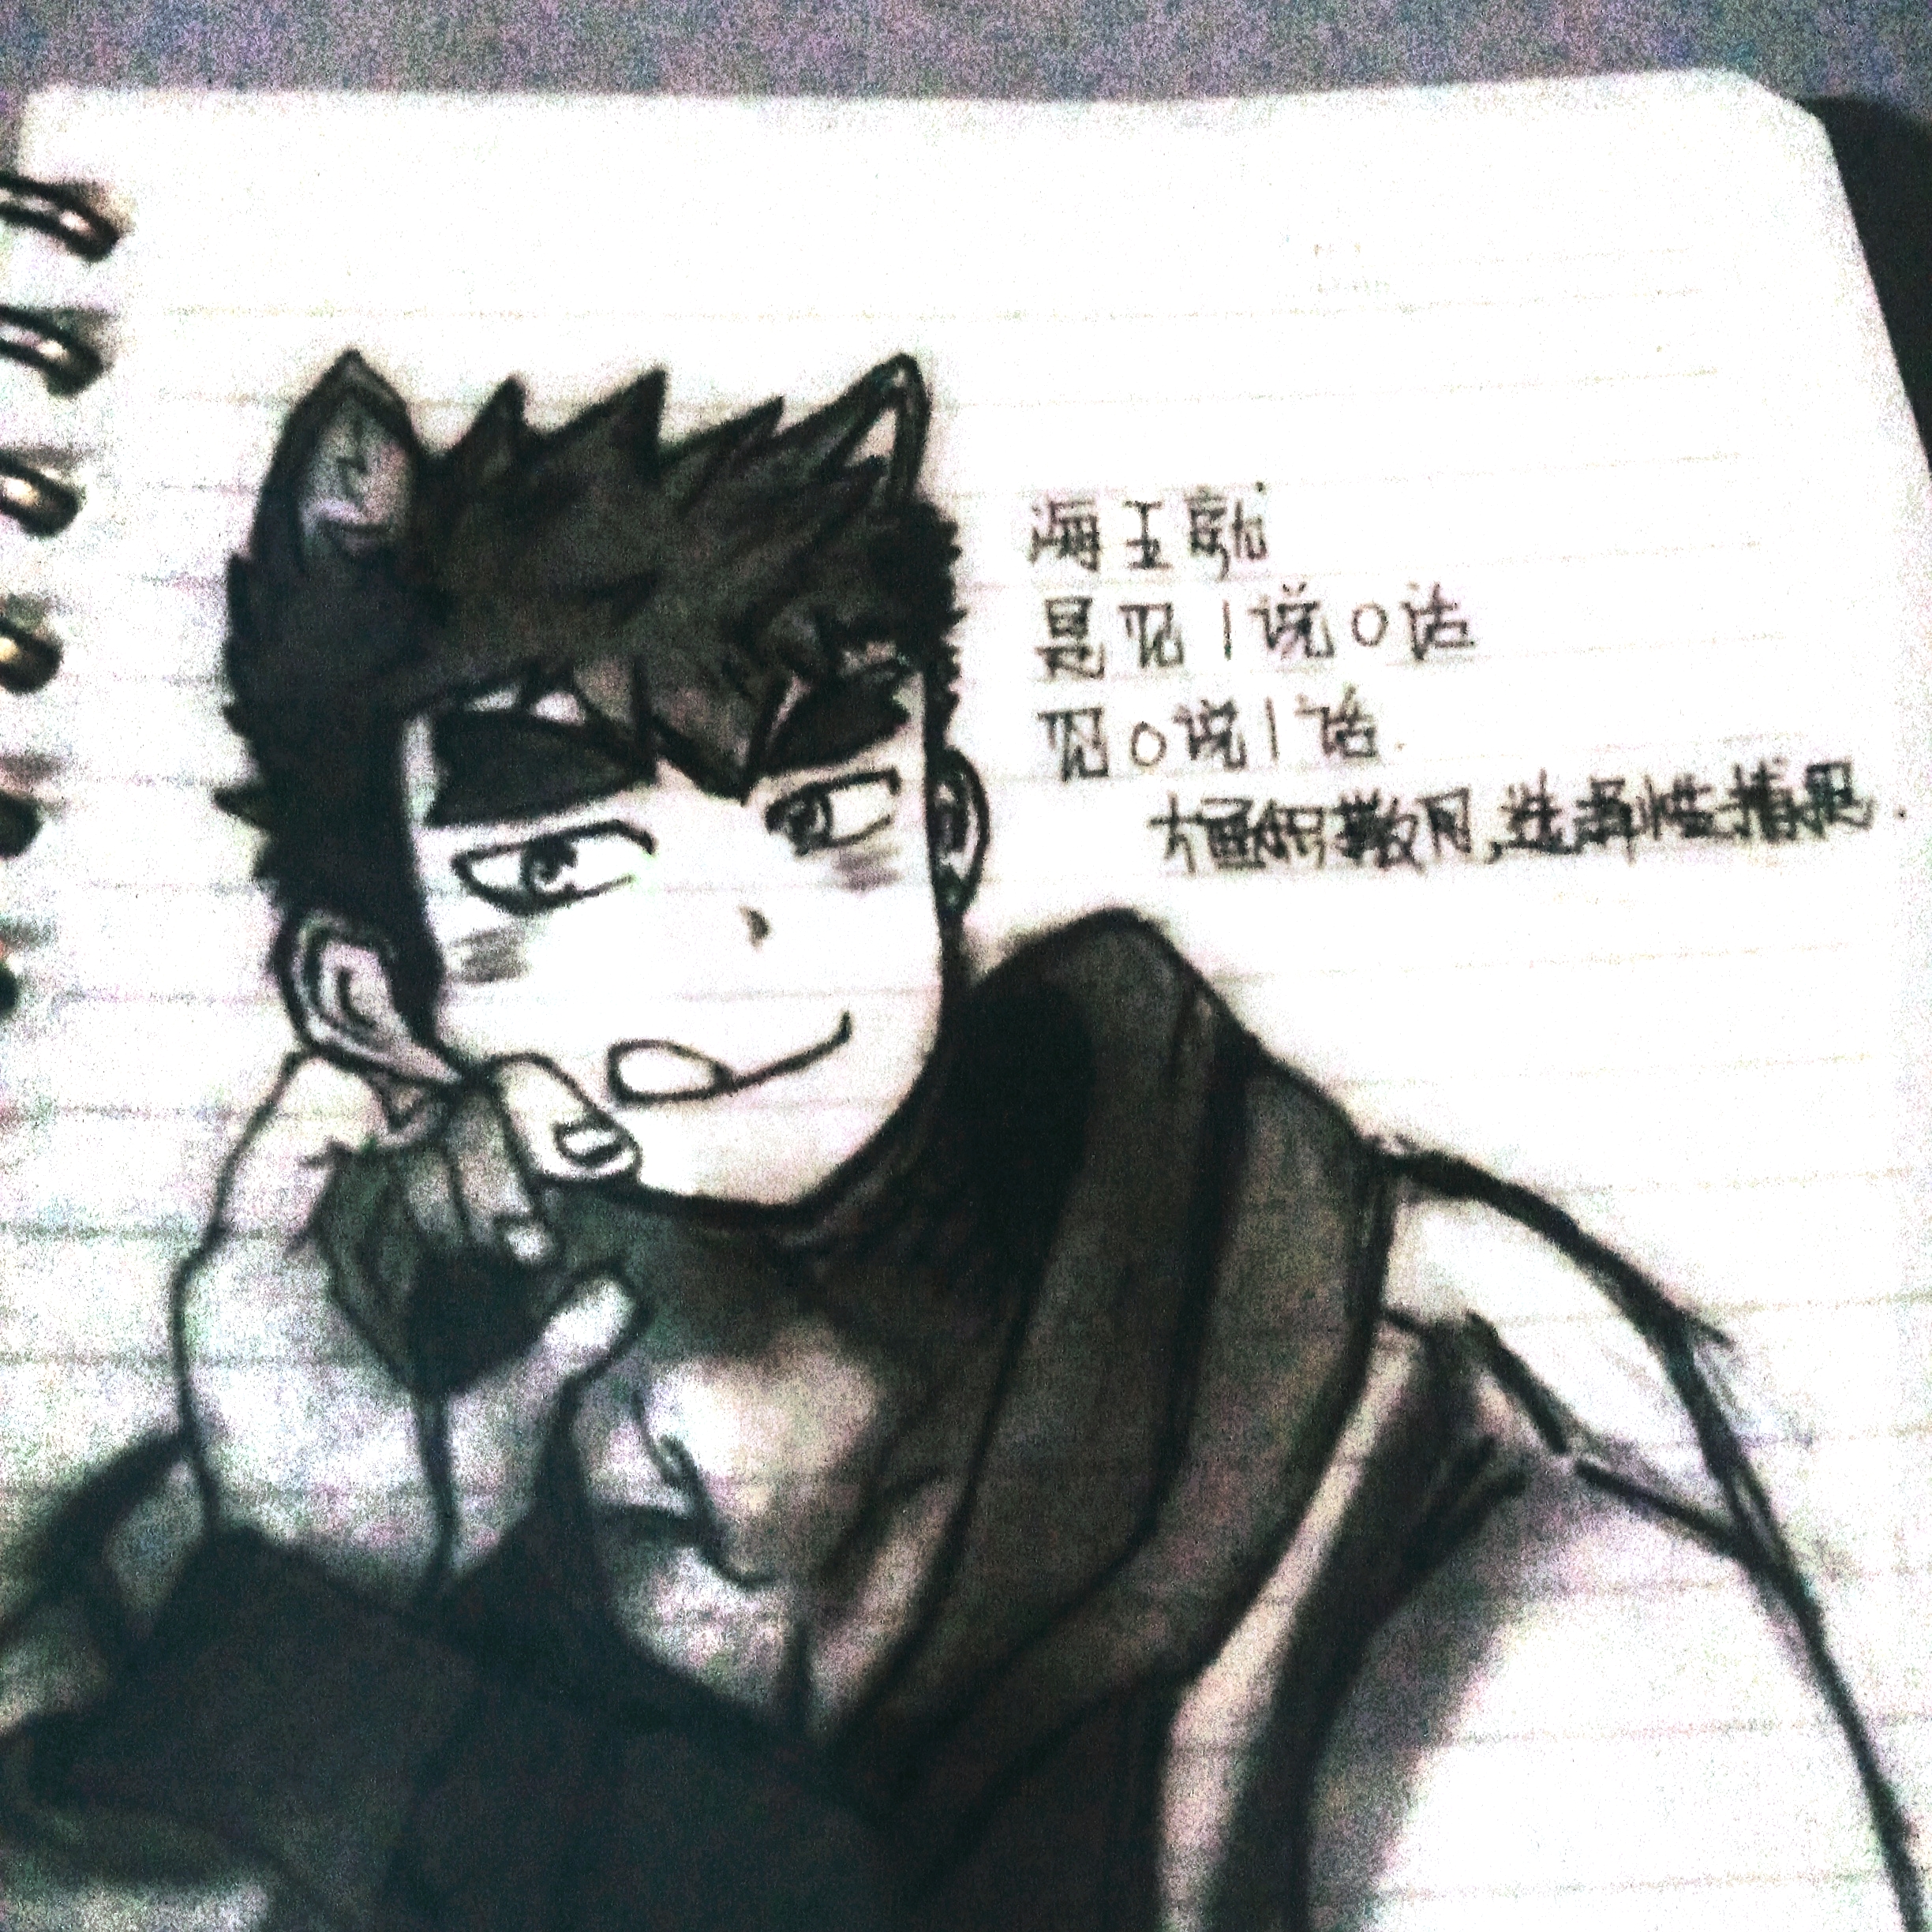 海王就
是见1说0话
见0说1话.
广撒网,选择性捕捉.